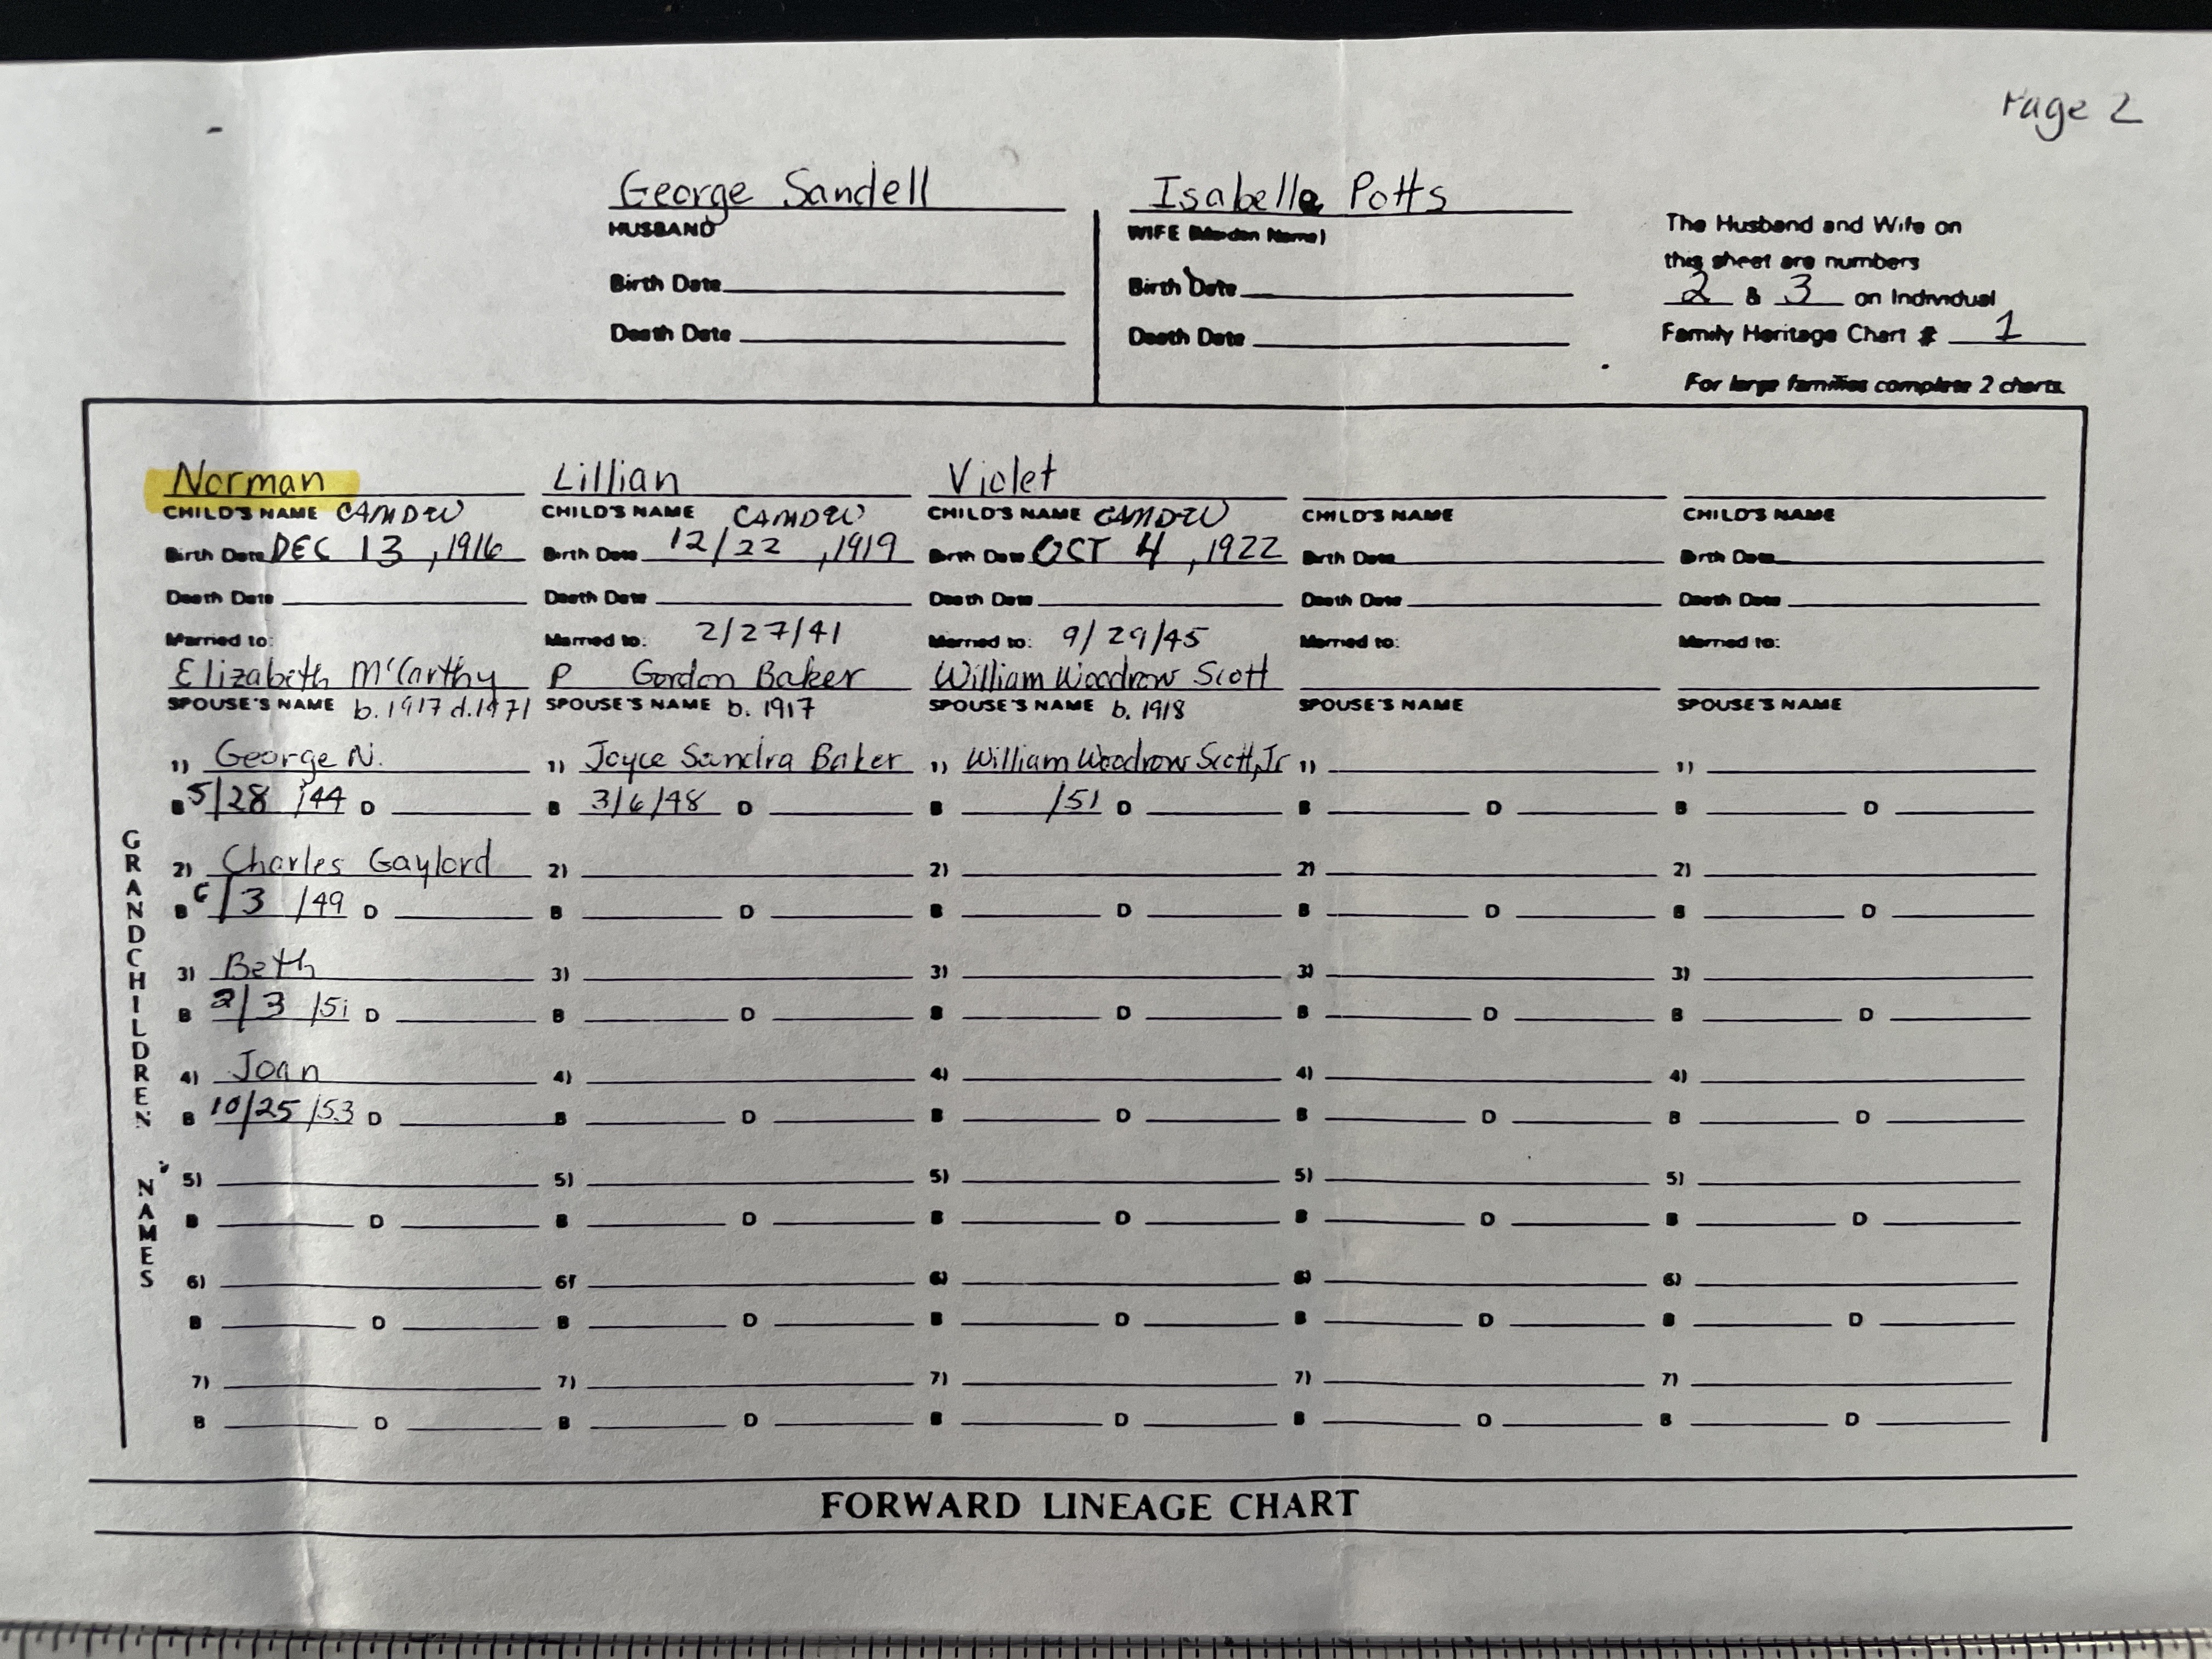 Page 2
George Sandell
HUSBAND
Birth Date
Death Date
Isabelle Potts
WIFE (Maiden Name)
Birth Date
Death Date
The Husband and Wife on
this sheet are numbers
2 & 3 on Individual
Family Heritage Chart # 1
For large families complete 2 charts.
Norman
CHILD'S NAME CAMDEN
Birth Date DEC 13, 1916
Death Date
Married to:
Elizabeth McCarthy
SPOUSE'S NAME b. 1917 d. 1971
1) George N.
B 5/28/44 D
2) Charles Gaylord
B 6/3/49 D
3) Beth
B 2/3/51 D
4) Joan
B 10/25/53 D
5)
B D
6)
B D
7)
B D
Lillian
CHILD'S NAME CAMDEN
Birth Date 12/22, 1919
Death Date
Married to: 2/27/41
P Gordon Baker
SPOUSE'S NAME b. 1917
1) Joyce Sandra Baker
B 3/6/48 D
2)
B D
3)
B D
4)
B D
5)
B D
6)
B D
7)
B D
Violet
CHILD'S NAME CAMDEN
Birth Date OCT 4, 1922
Death Date
Married to: 9/29/45
William Woodrow Scott
SPOUSE'S NAME b. 1918
1) William Woodrow Scott, Jr
B /51 D
2)
B D
3)
B D
4)
B D
5)
B D
6)
B D
7)
B D
CHILD'S NAME
Birth Date
Death Date
Married to:
SPOUSE'S NAME
1)
B D
2)
B D
3)
B D
4)
B D
5)
B D
6)
B D
7)
B D
CHILD'S NAME
Birth Date
Death Date
Married to:
SPOUSE'S NAME
1)
B D
2)
B D
3)
B D
4)
B D
5)
B D
6)
B D
7)
B D
GRANDCHILDREN'S NAMES
FORWARD LINEAGE CHART